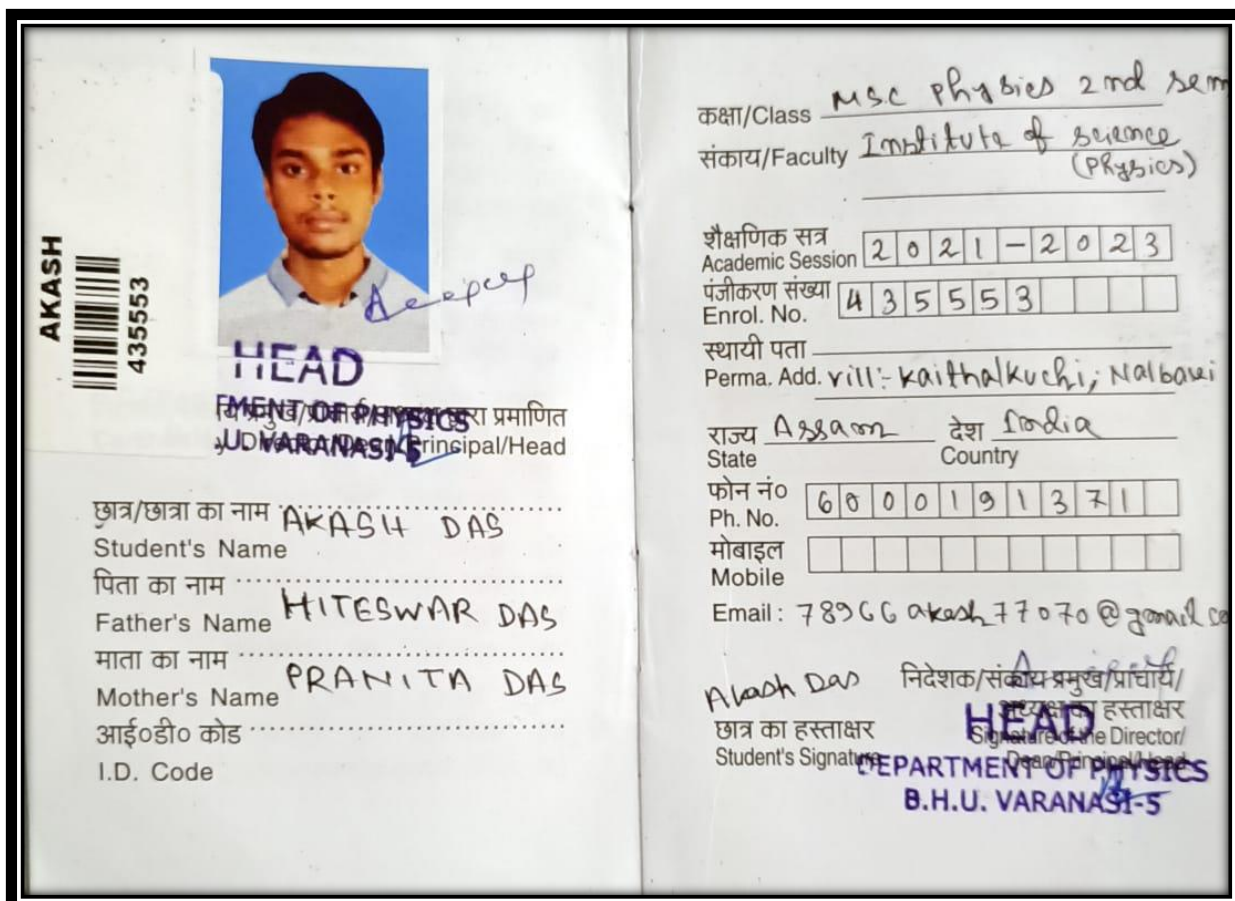 AKASH
435553
HEAD
MENT OF PHYSICS
द्वारा प्रमाणित
U. VARANASI-5
Principal/Head
छात्र/छात्रा का नाम AKASH DAS
Student's Name
पिता का नाम
Father's Name HITESWAR DAS
माता का नाम
Mother's Name PRANITA DAS
आई०डी० कोड
I.D. Code
कक्षा/Class MSC Physics 2nd sem
संकाय/Faculty Institute of science
(Physics)
शैक्षणिक सत्र
Academic Session 2021-2023
पंजीकरण संख्या
Enrol. No. 435553
स्थायी पता
Perma. Add. vill:- Kaithalkuchi, Nalbari
राज्य Assam देश India
State Country
फोन नं० 6000191371
Ph. No.
मोबाइल
Mobile
Email : 78966akash77070@gmail.co
Akash Das निदेशक/संकाय प्रमुख/प्राचार्य/
अध्यक्ष का हस्ताक्षर
छात्र का हस्ताक्षर HEAD
Signature of the Director/
Student's Signature Dean/Principal/Head
DEPARTMENT OF PHYSICS
B.H.U. VARANASI-5